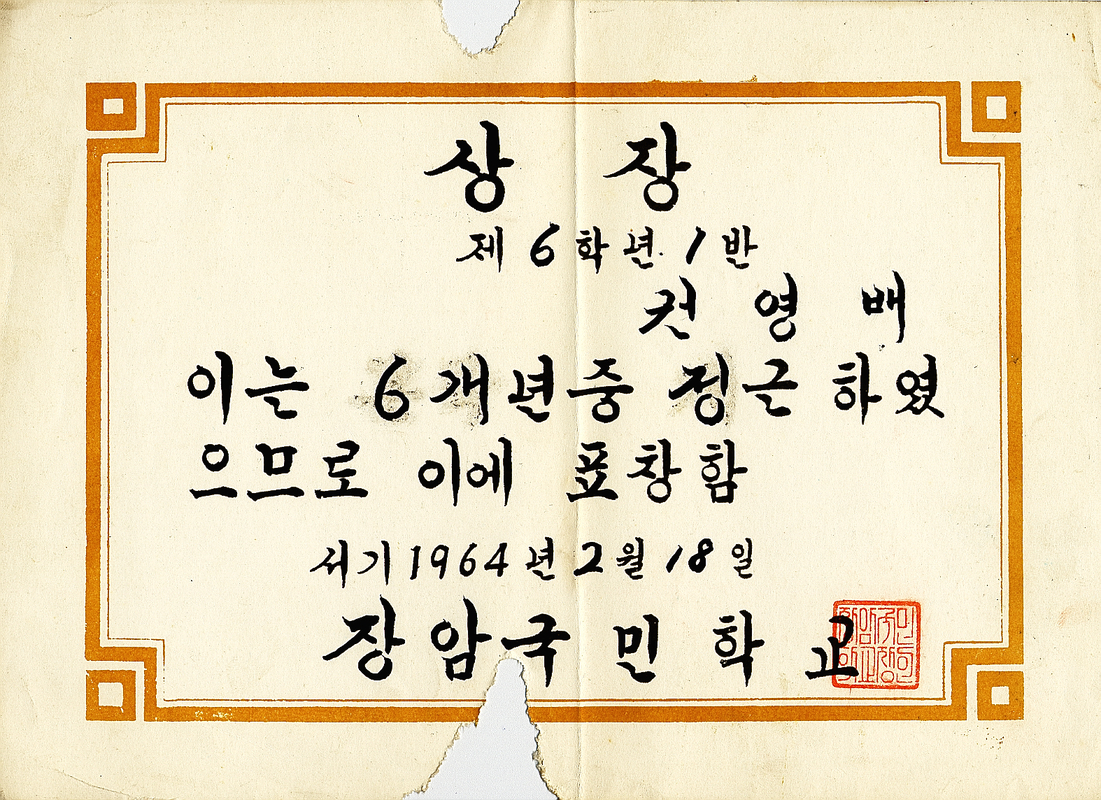 상 장
제 6 학년 1 반
권 영 배
이는 6개년중 정근 하였
으므로 이에 표창함
서기 1964년 2월 18일
장암국민학교